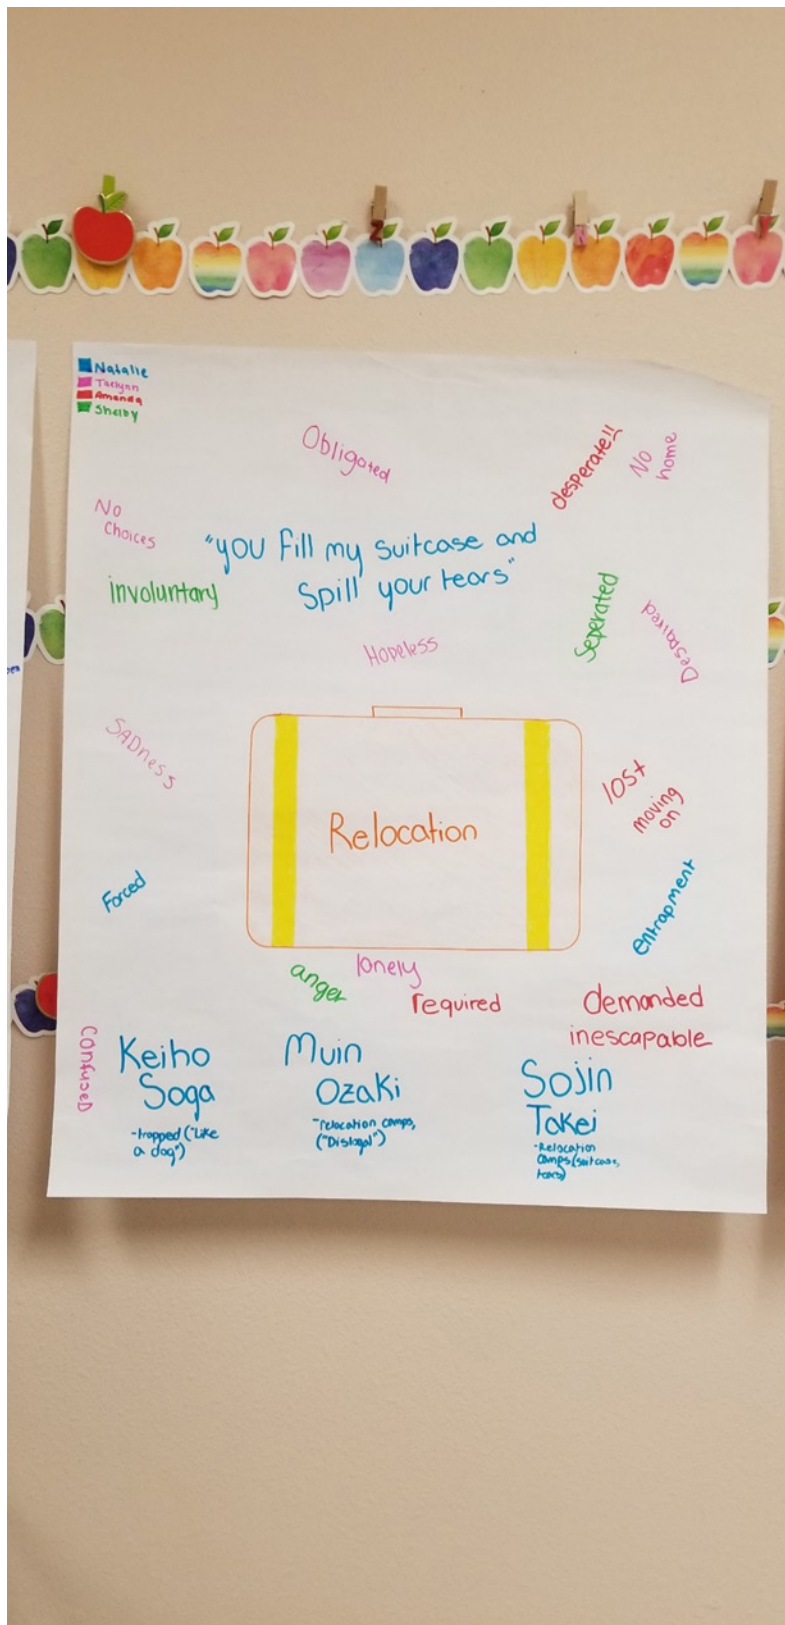 Natalie
Taelynn
Amanda
Shelby
Obligated
desperate!!
No
home
No
choices
"you fill my suitcase and
spill your tears"
involuntary
Seperated
Despaired
Hopeless
SADness
lost
moving
on
Relocation
Forced
entrapment
anger
lonely
required
demanded
inescapable
confuseD
Keiho
Soga
-trapped ("Like
a dog")
Muin
Ozaki
-relocation camps,
("Disloyal")
Sojin
Takei
-Relocation
camps (suitcase,
tears)